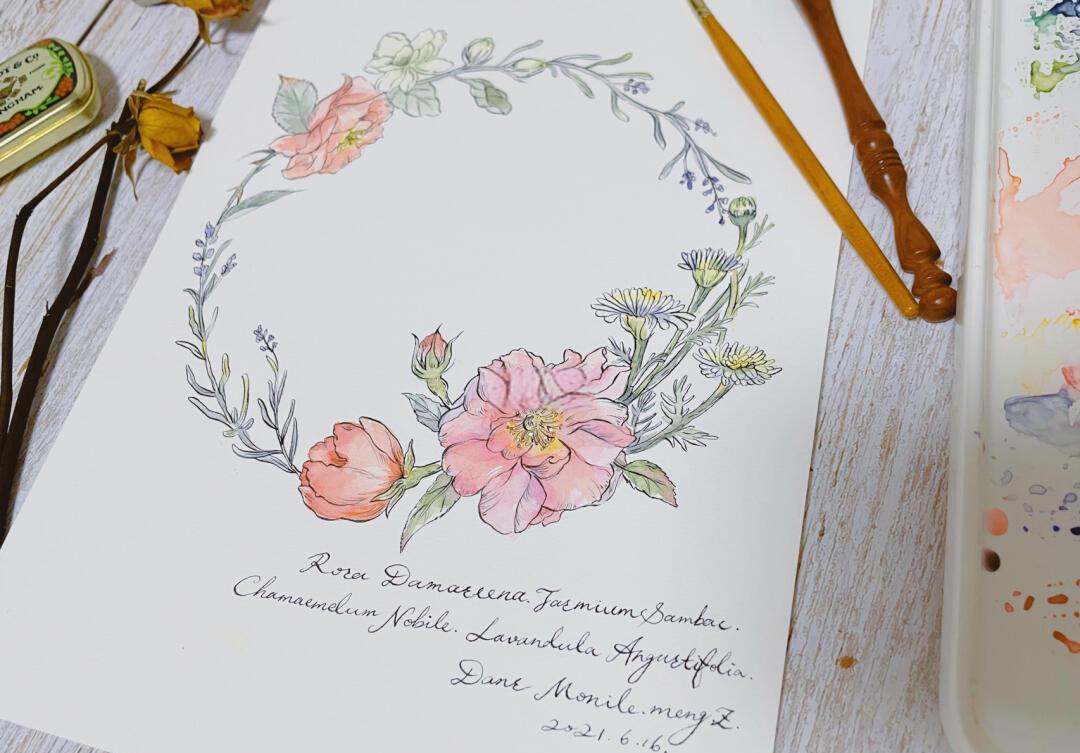 & Co
NGHAM
Rosa Damascena. Jasmium Sambac.
Chamaemelum Nobile. Lavandula Angustifolia.
Dans Monile. meng Z.
2021.6.16.